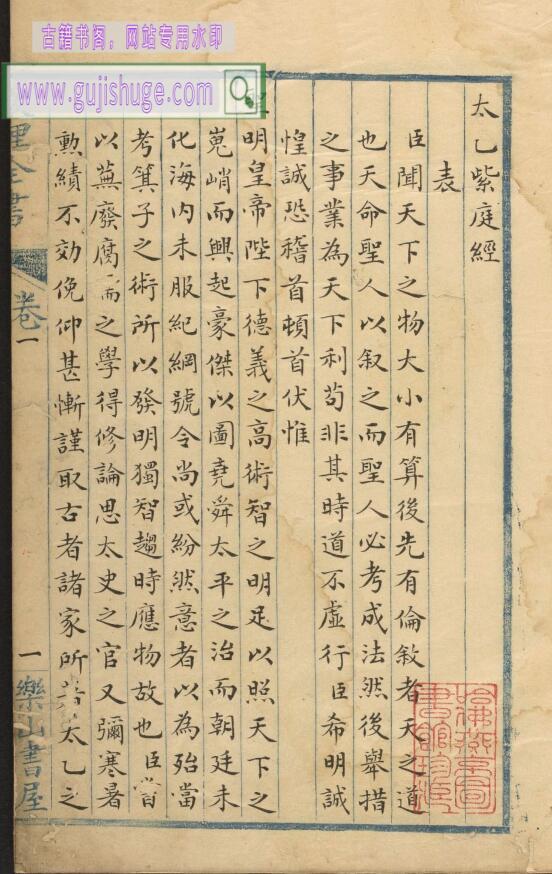 古籍书阁，网站专用水印
www.gujishuge.com
太乙紫庭經
表
臣聞天下之物大小有算後先有倫敘者天之道
也天命聖人以叙之而聖人必考成法然後舉措
之事業為天下利苟非其時道不虛行臣希明誠
惶誠恐稽首頓首伏惟
明皇帝陛下德義之高術智之明足以照天下之
嵬峭而興起豪傑以圖堯舜太平之治而朝廷未
化海内未服紀綱號令尚或紛然意者以為殆當
考箕子之術所以發明獨智趨時應物故也臣嘗
以蕪廢腐儒之學得修論思太史之官又彌寒暑
勲績不効俛仰甚慚謹取古者諸家所著太乙之
理全書
卷一
一
樂山書屋
哈佛燕京圖書館珍藏印